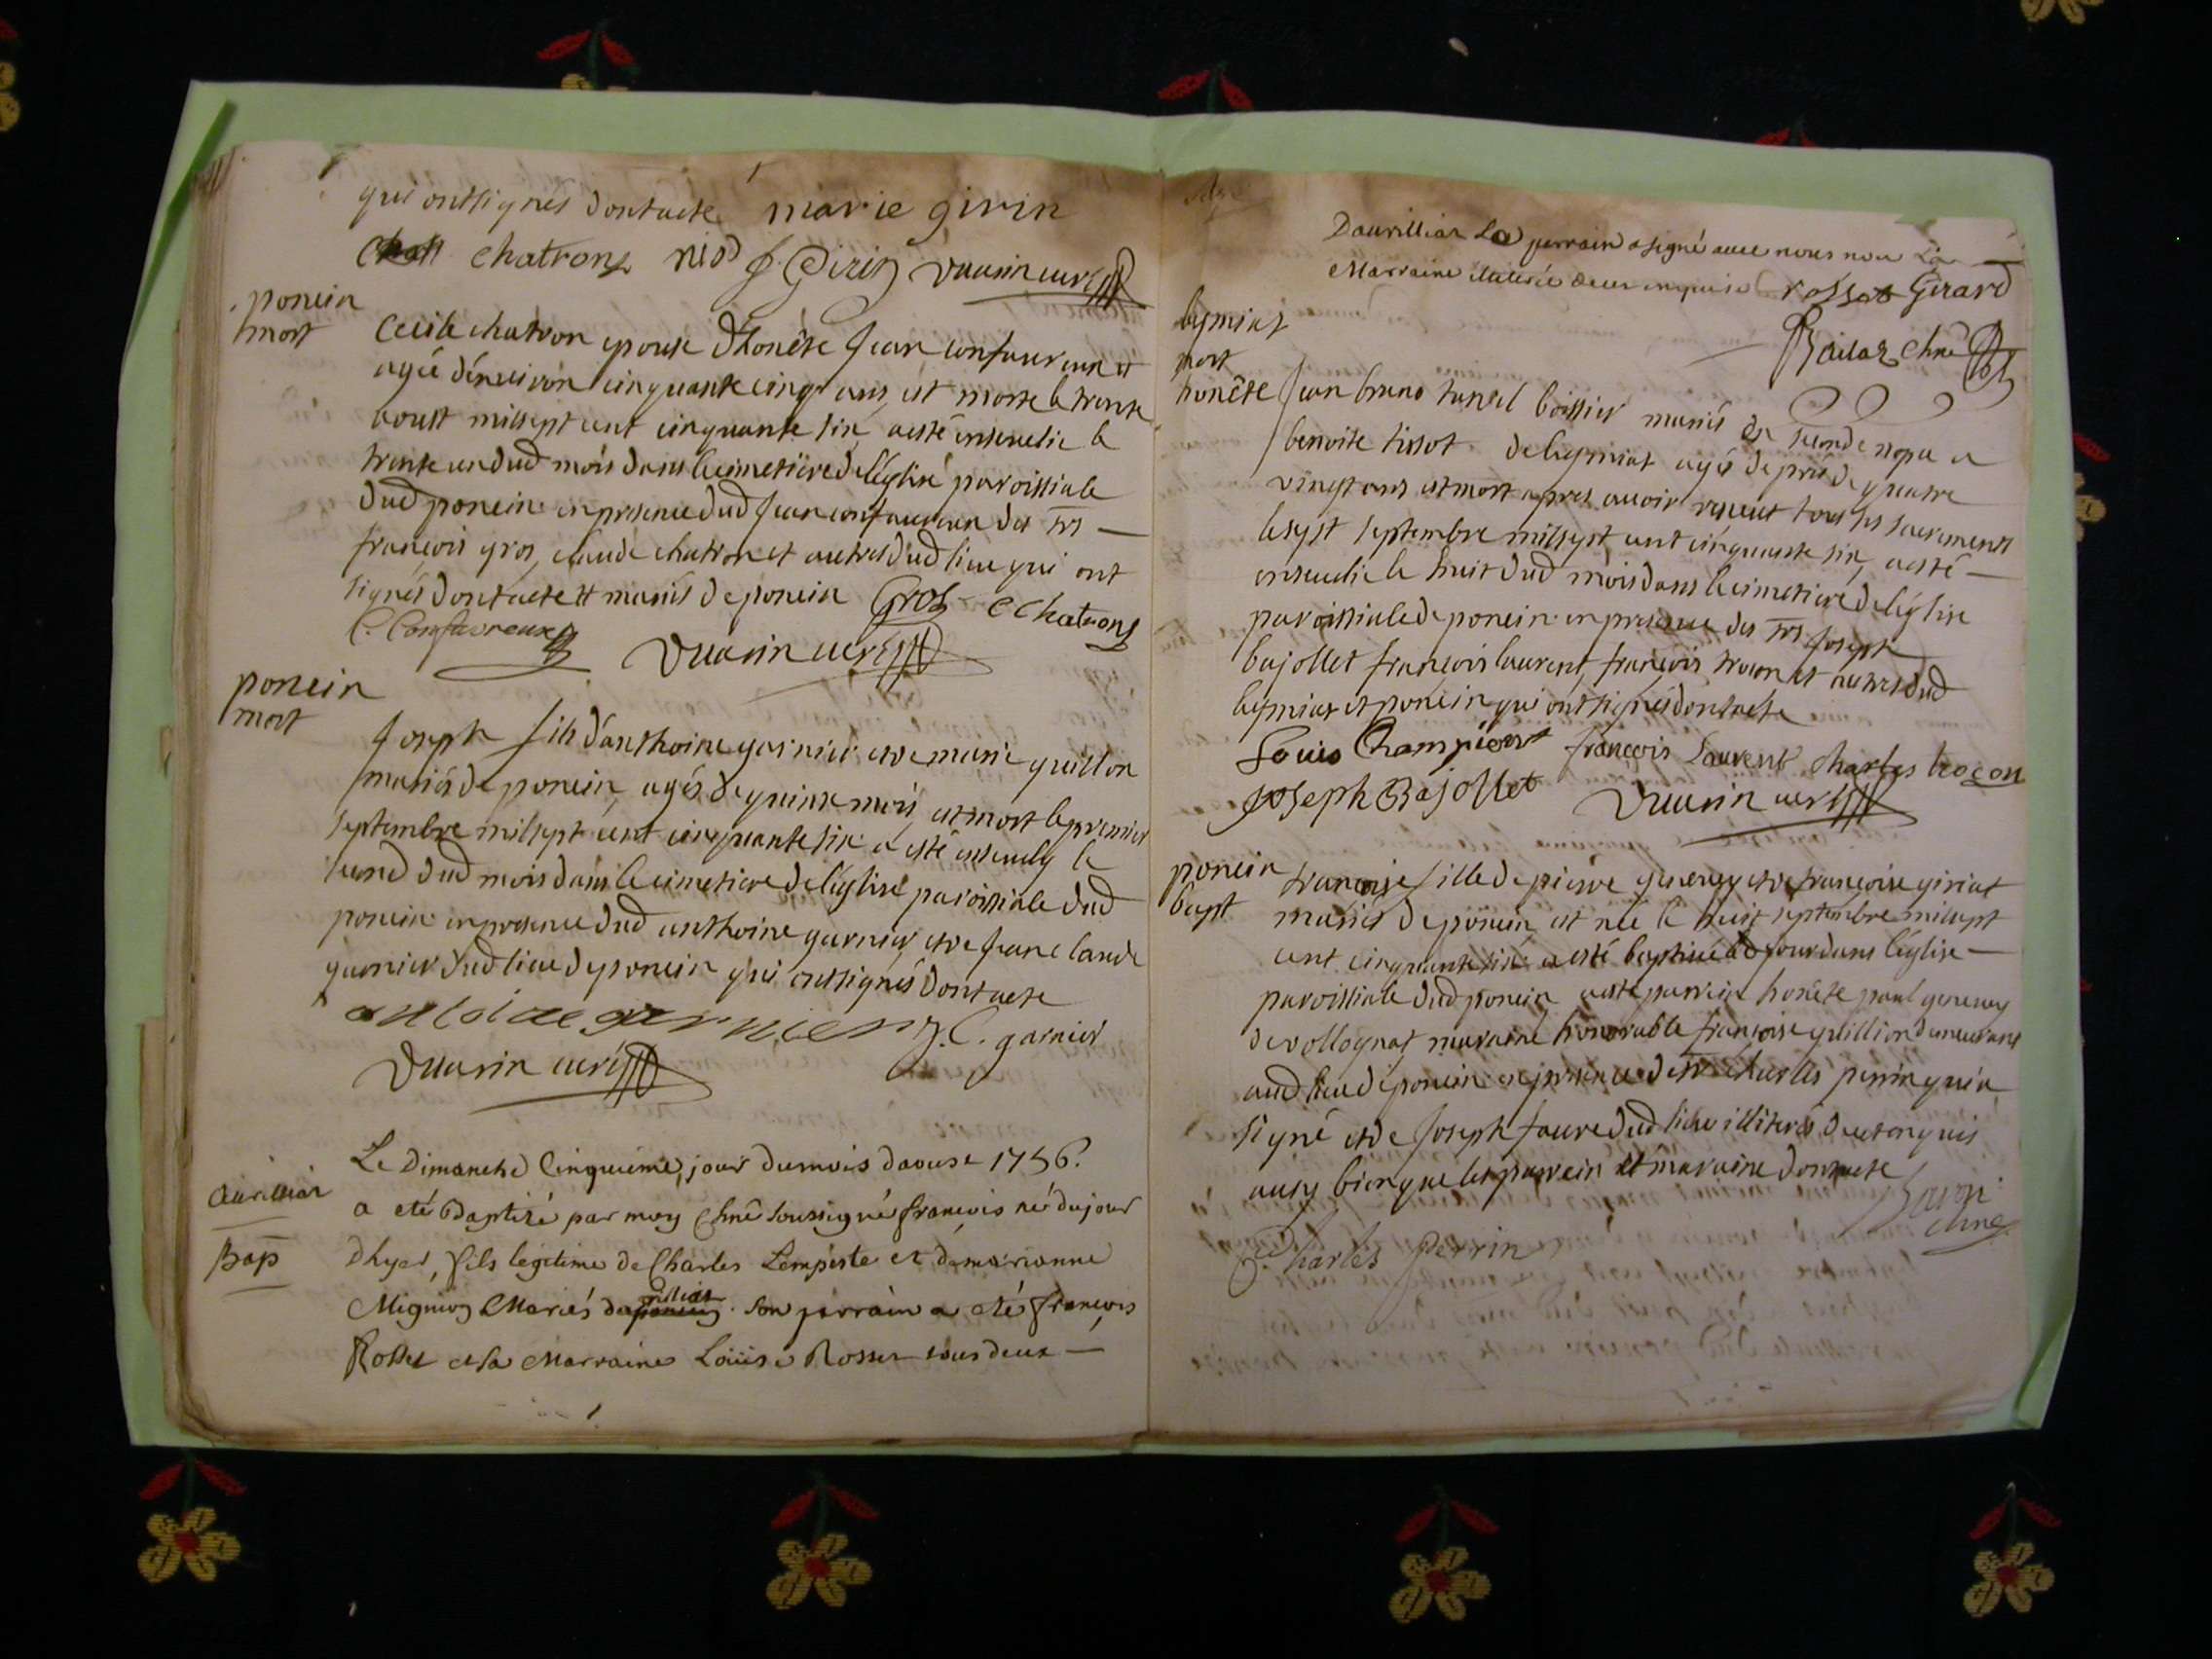 qui ontsignés dontacte marie girin
chatrons niod J. Girin vuarin curé
ponein
mort
Cecile chatron epouse d'honête Jean confavreux et
agée d'environ cinquante cinq ans, est morte le trente
aoust milsept cent cinquante six, aesté ensevelie le
trente un dud mois dans le cimetière de léglise paroissiale
dud ponein en presence dud Jean confavreux des srs —
françois gros, claude chatron et autres dud lieu qui ont
signés dontacte et mariés de ponein Gros C chatrons
C. Confavreux vuarin curé
ponein
mort
Joseph fils d'anthoine garnier et de marie guillon
mariés de ponein, agés de quinze mois, est mort le premier
septembre milsept cent cinquante six a esté ensevely le
second dud mois dans le cimetiere de léglise paroissiale dud
ponein en presence dud anthoine garnier, et de Jean claude
garnier dud lieu de ponein qui ontsignés dontacte
antoine garnier J. C. garnier
vuarin curé
Le Dimanche Cinquième, jour dumois daoust 1756.
aurilliat
a eté Baptisé par moy Chne soussigné françois né dujour
Bap
dhyer, fils legitime de Charles Lempeste et de marianne
Mignion Mariés du rilliat son parrain a eté françois
Rosset et la Marraine Loüise Rosset tous deux —
Daurilliat Le parrain a signé avec nous non La —
Marraine illiterée de ce enquise rosset Girard
chne
legmiat
mort
honête Jean bruno tursel boissier mariés en seconde nopce a
benoite tissot de legmiat agés de près de quatre
vingt ans est mort apres avoir receut tous ses sacrements
le sept septembre milsept cent cinquante six, aesté —
ensevelie le huit dud mois dans le cimetiere de léglise
paroissiale de ponein en presence des srs Joseph
bajollet françois laurent, françois trocon et autres dud
legmiat et ponein qui ont signés dontacte
Louis Champion françois Laurent charles trocon
Joseph Bajollet vuarin curé
ponein
bapt
françoise fille de pierre genevey et de françoise giriat
mariés de ponein est née le huit septembre milsept
cent cinquante six a esté baptisée led jour dans léglise —
paroissiale dud ponein aesté parrein honête paul genevey
de vollognat maraine honorable françoise guillion demeurant
aud lieu de ponein en presence de sr charles perrin qui a
signé et de Joseph faure dud lieu illiterés de ce enquis
aussy bien que les parrein et maraine dontacte
Charles perrin
chne